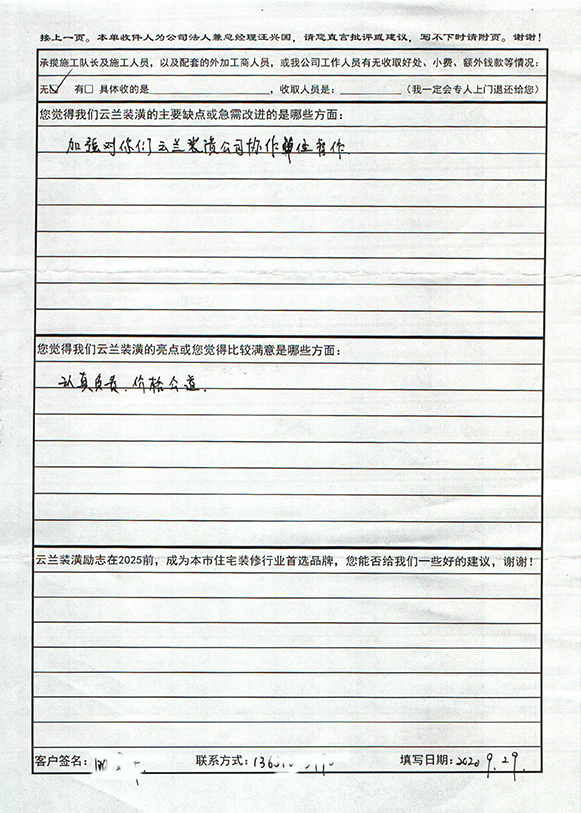 接上一页。本单收件人为公司法人兼总经理汪兴国，请您直言批评或建议，写不下时请附页。谢谢！
承揽施工队长及施工人员，以及配套的外加工商人员，或我公司工作人员有无收取好处、小费、额外钱款等情况：
无☑ 有□ 具体收的是 ，收取人员是： （我一定会专人上门退还给您）
您觉得我们云兰装潢的主要缺点或急需改进的是哪些方面：
加强对你们云兰装潢公司协作单位合作
您觉得我们云兰装潢的亮点或您觉得比较满意是哪些方面：
认真负责、价格公道。
云兰装潢励志在2025前，成为本市住宅装修行业首选品牌，您能否给我们一些好的建议，谢谢！
客户签名： 联系方式： 填写日期：2020 9.29.